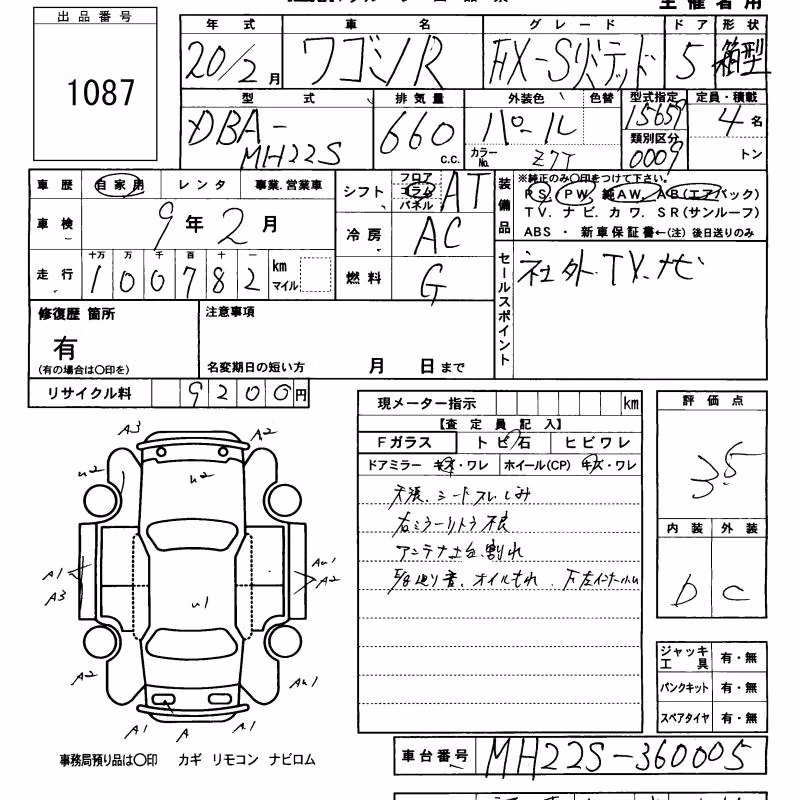 主催者用
出品番号
1087
年式 車名 グレード ドア 形状
20/2月 ワゴンR FX-Sリミテッド 5 箱型
型式 排気量 外装色 色替 型式指定 定員・積載
DBA-MH22S 660 c.c. パール 15659 4名
カラーNo. Z7T 類別区分 0009 トン
車歴 自家用 レンタ 事業.営業車
車検 9年2月
走行 十万 万 千 百 十
100782 km マイル
シフト フロア コラム パネル AT
冷房 AC
燃料 G
装備品
※純正のみ○印をつけて下さい。
PS. PW. 純AW. AB(エアバック)
TV. ナビ. カワ. SR(サンルーフ)
ABS ・ 新車保証書←(注) 後日送りのみ
セールスポイント
社外.TV.ナビ
修復歴 箇所
有
(有の場合は○印を)
注意事項
名変期日の短い方 月 日まで
リサイクル料 9200円
現メーター指示 km
【査定員記入】
Fガラス トビ石 ヒビワレ
ドアミラー キズ・ワレ ホイール(CP) キズ・ワレ
天張.シートスレ.しみ
右ミラーリトラ不良
アンテナ土台割れ
オイルもれ
評価点
3.5
内装 外装
b c
ジャッキ工具 有・無
パンクキット 有・無
スペアタイヤ 有・無
A3 A2
u2 u2
A1 A3 u1 Au1 A2
A2 Au1
A1 A A1
事務局預り品は○印 カギ リモコン ナビロム
車台番号 MH22S-360005